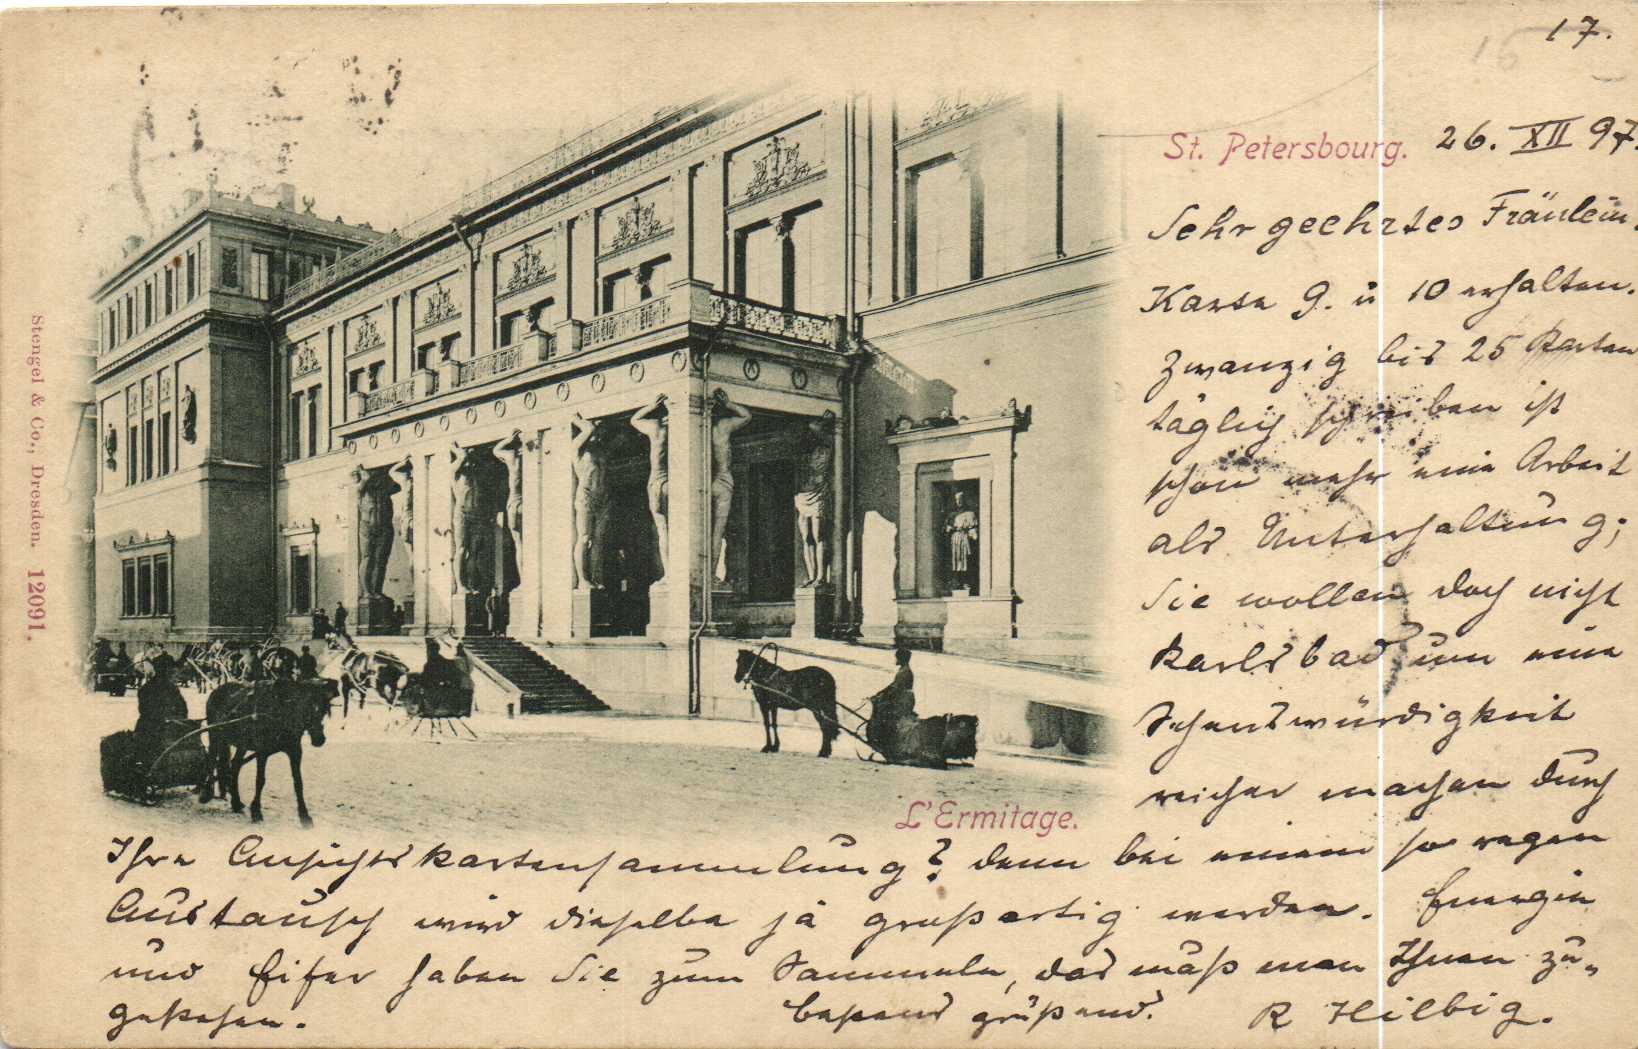 17.
St. Petersbourg. 26. XII 97.
Sehr geehrtes Fräulein.
Karte 9. u 10 erhalten.
Zwanzig bis 25 Karten
täglich schreiben ist
schon mehr eine Arbeit
als Unterhaltung;
Sie wollen doch nicht
Karlsbad um eine
Sehenswürdigkeit
reicher machen durch
L'Ermitage.
Ihre Ansichtskartensammlung? denn bei einem so regen
Austausch wird dieselbe ja großartig werden. Energie
und Eifer haben Sie zum Sammeln, das muß man Ihnen zu-
gestehen. bestens grüßend. R Hilbig.
Stengel & Co., Dresden. 12091.